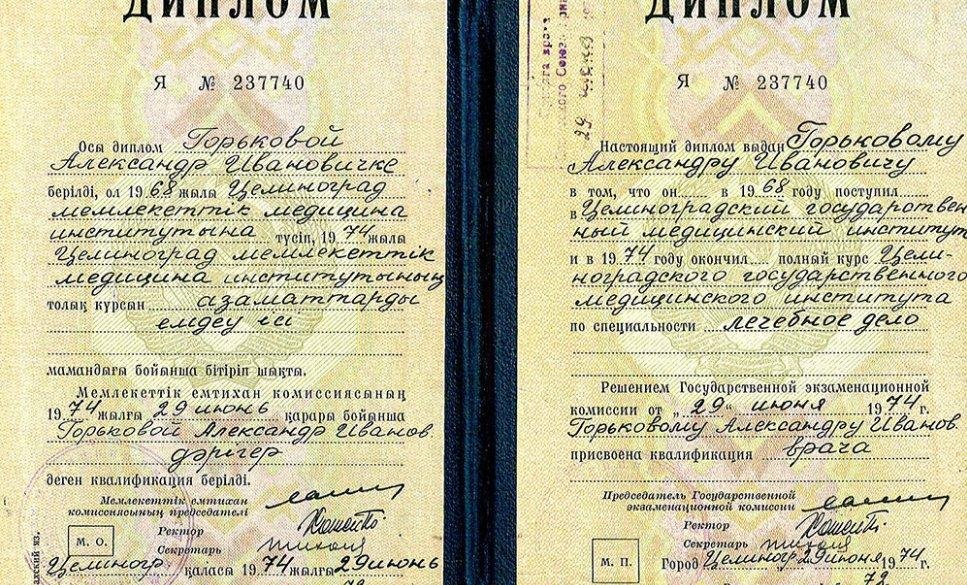 ДИПЛОМ
Я № 237740
Осы диплом Горьковой
Александр Ивановичке
берілді, ол 1968 жылы Целиноград
мемлекеттік медицина
институтына түсіп, 1974 жылы
Целиноград мемлекеттік
медицина институтының
толық курсын азаматтарды
емдеу ісі
мамандығы бойынша бітіріп шықты.
Мемлекеттік емтихан комиссиясының
1974 жылғы 29 июнь қарары бойынша
Горьковой Александр Иванов.
дәрігер
деген квалификация берілді.
Мемлекеттік емтихан
комиссиясының председателі
Ректор
Секретарь
М. О.
Целиногр. қаласы 1974 жылғы 29 июнь
ДИПЛОМ
Я № 237740
29
Настоящий диплом выдан Горьковому
Александру Ивановичу
в том, что он в 1968 году поступил
в Целиноградский государствен
ный медицинский институт
и в 1974 году окончил полный курс Цели-
ноградского государственного
медицинского института
по специальности лечебное дело
Решением Государственной экзаменационной
комиссии от „29" июня 1974 г.
Горьковому Александру Иванов.
присвоена квалификация врача
Председатель Государственной
экзаменационной комиссии
Ректор
Секретарь
М. П.
Город Целиногр. 29 июня 1974 г.